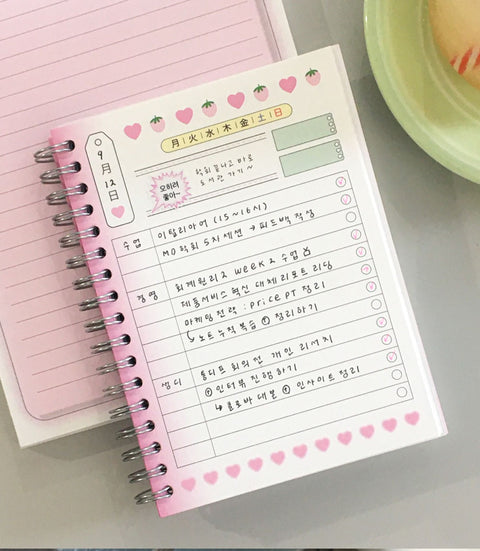 月 火 水 木 金 土 日
9
月
12
日
학회 끝나고 바로
도서관 가기~
오히려
좋아~
수업 이탈리아어 (15~16시)
MO학회 5차세션 → 피드백 작성
경영 회계원리2 week2 수업
제품서비스혁신 대체 리포트 리딩
마케팅전략 : price PT 정리
↳ 노트 누적복습 ④ 정리하기
통디프 회의 전 개인 리서치
④ 인터뷰 진행하기
↳ 클로바 대본 ④ 인사이트 정리